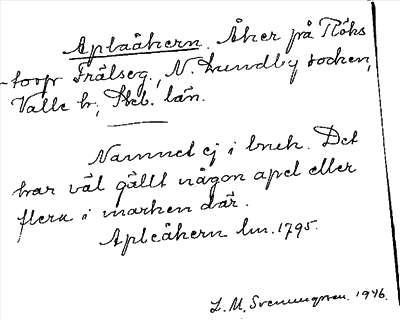 Aplaåkern. Åker på Röks
torp Frälseg., N. Lundby socken,
Valle h., Skb. län.
Namnet ej i bruk. Det
har väl gällt någon apel eller
flera i marken där.
Apleåkern lm. 1795.
L. M. Svenungsson. 1946.